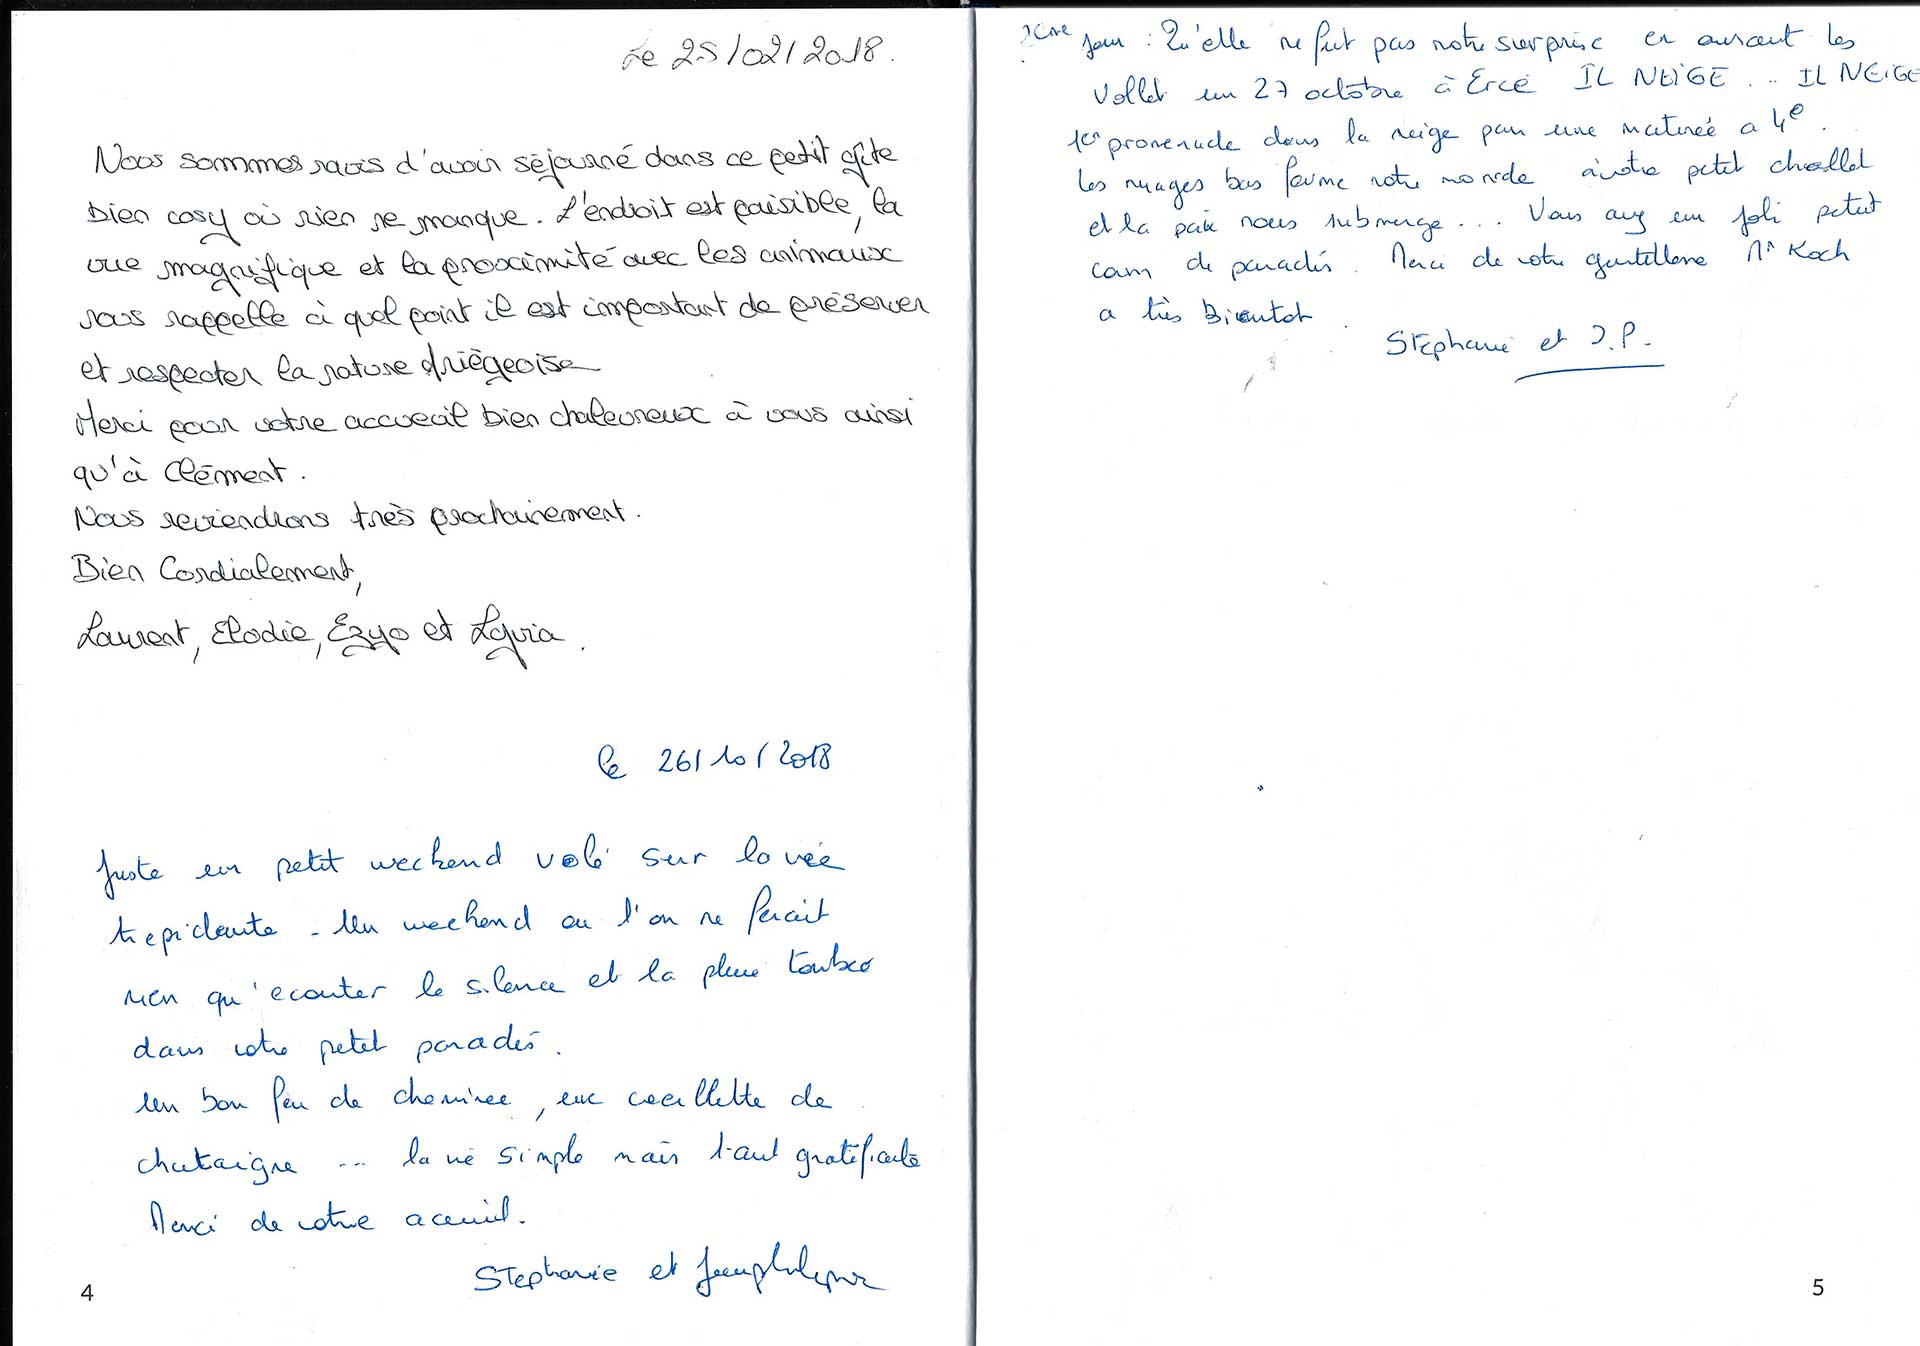 Le 25/02/2018.
Nous sommes ravis d'avoir séjourné dans ce petit gîte
bien cosy où rien ne manque. L'endroit est paisible, la
vue magnifique et la proximité avec les animaux
nous rappelle à quel point il est important de préserver
et respecter la nature Ariégeoise
Merci pour votre accueil bien chaleureux à vous ainsi
qu'à Clément.
Nous reviendrons très prochainement.
Bien Cordialement,
Laurent, Elodie, Ezyo et Lyvia.
le 26/10/2018
Juste un petit weekend volé sur la vie
trepidante - Un weekend ou l'on ne ferait
rien qu'ecouter le silence et la pluie tomber
dans votre petit paradis.
Un bon feu de cheminee, une cueillette de
chataigne ... la vie simple mais tant gratifiante
Merci de votre acceuil.
Stephanie et Jeanphilippe
4
2eme jour : Qu'elle ne fut pas notre surprise en ouvrant les
Vollet un 27 octobre à Ercé IL NEIGE .. IL NEIGE
1er promenade dans la neige par une matinée a 4°.
les nuages bas ferme notre monde à votre petit challet
et la paix nous submerge... Vous avez un joli petit
coin de paradis. Merci de votre gentillesse Mr Koch
a très Bientot
Stephanie et J.P.
5